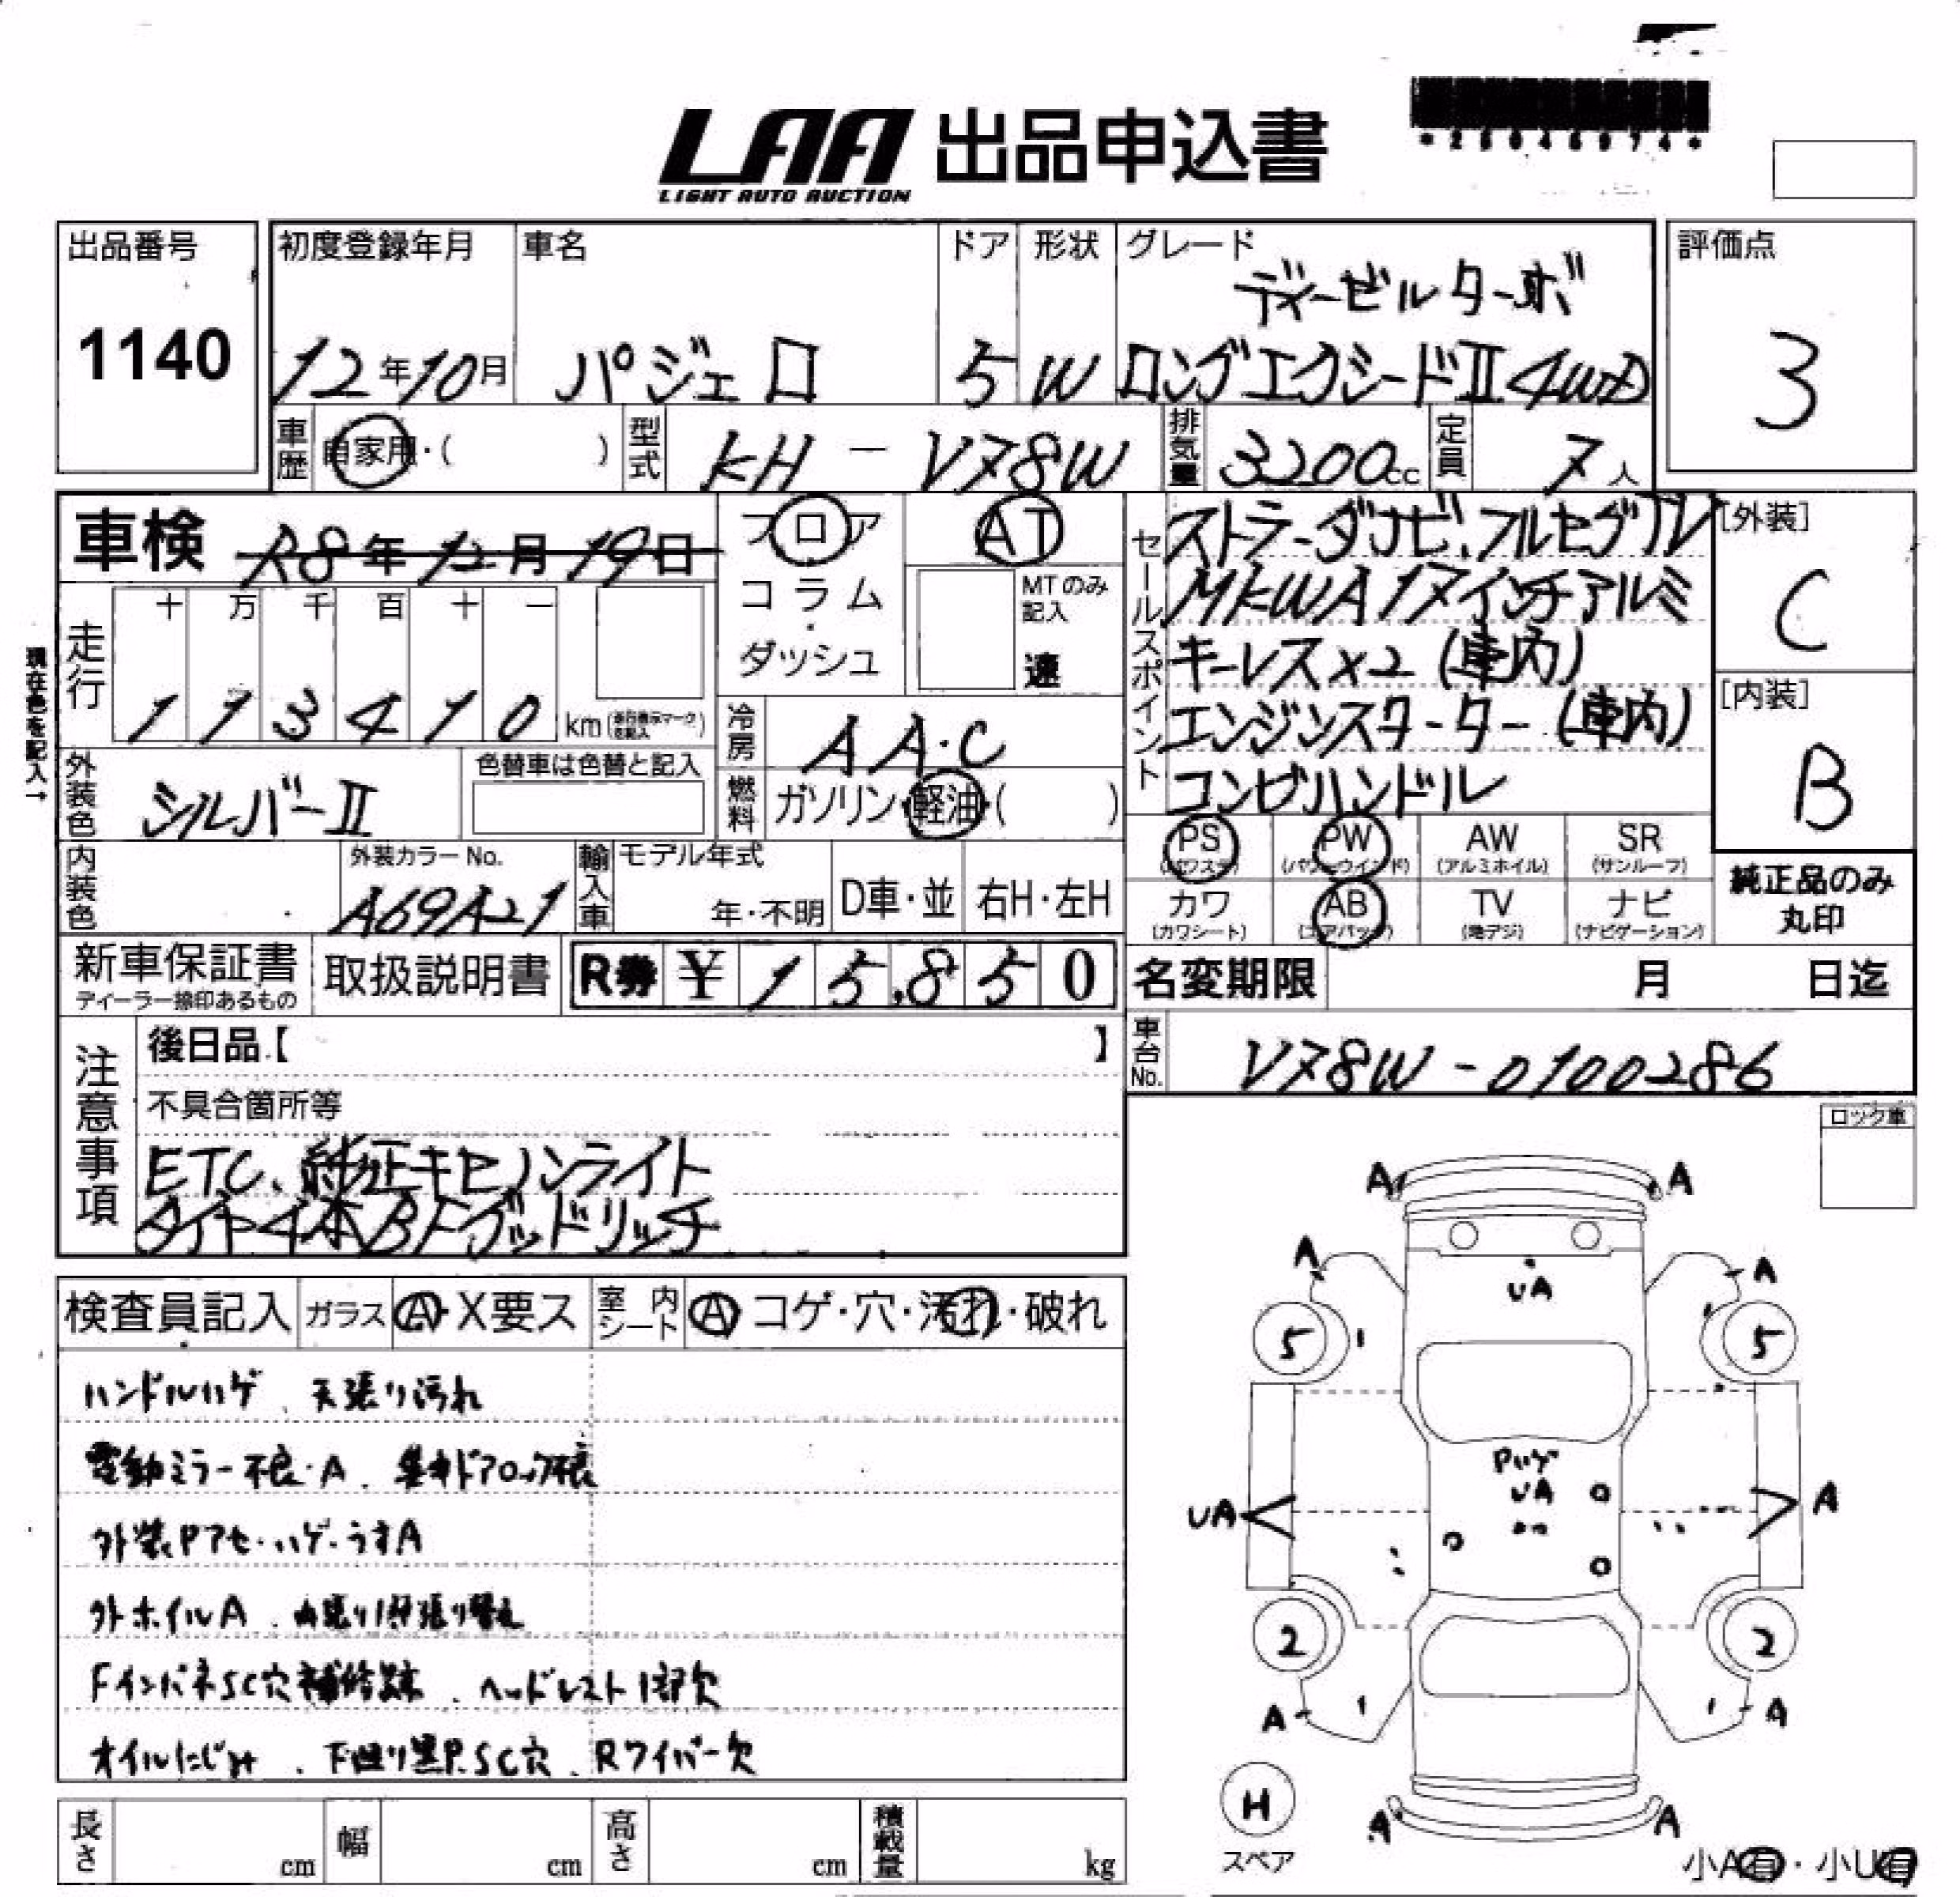 LAA 出品申込書
LIGHT AUTO AUCTION
出品番号
1140
初度登録年月
12年10月
車名
パジェロ
ドア
5
形状
W
グレード
ディーゼルターボ
ロングエクシードⅡ 4WD
評価点
3
車歴
自家用・( )
型式
KH - V78W
排気量
3200cc
定員
7人
車検
R8年12月19日
フロア
コラム
・
ダッシュ
AT
MTのみ
記入
速
セールスポイント
ストラーダナビ、フルセグTV
MKWA17インチアルミ
キーレス×2 (車内)
エンジンスターター (車内)
コンビハンドル
[外装]
C
[内装]
B
現在色を記入→
走行
十 万 千 百 十 一
1 1 3 4 1 0 km
冷房
AAC
外装色
シルバーⅡ
色替車は色替と記入
燃料
ガソリン・軽油・( )
内装色
外装カラーNo.
A69A21
輸入車
モデル年式
年・不明
D車・並
右H・左H
PS
(パワステ)
PW
(パワーウインド)
AW
(アルミホイル)
SR
(サンルーフ)
カワ
(カワシート)
AB
(エアバッグ)
TV
(地デジ)
ナビ
(ナビゲーション)
純正品のみ
丸印
新車保証書
ディーラー捺印あるもの
取扱説明書
R券 ¥ 15,850
名変期限
月 日迄
車台No.
V78W - 0100286
注意事項
後日品【 】
不具合箇所等
ETC、純正キセノンライト
タイヤ4本BFグッドリッチ
ロック車
検査員記入
ガラス
A・X要ス
室内シート
A コゲ・穴・汚れ・破れ
ハンドルハゲ、天張り汚れ
電動ミラー不良・A、集中ドアロック不良
外装Pアセ・ハゲ・うすA
外ホイルA、内張り1部張り替え
FインパネSC穴補修跡、ヘッドレスト1部欠
オイルにじみ、下廻り黒P.SC穴、Rワイパー欠
A A
A A
UA
5 5
Pハゲ
UA
UA A
2 2
A A
H
スペア
A A
小A有・小U有
長さ
cm
幅
cm
高さ
cm
積載量
kg